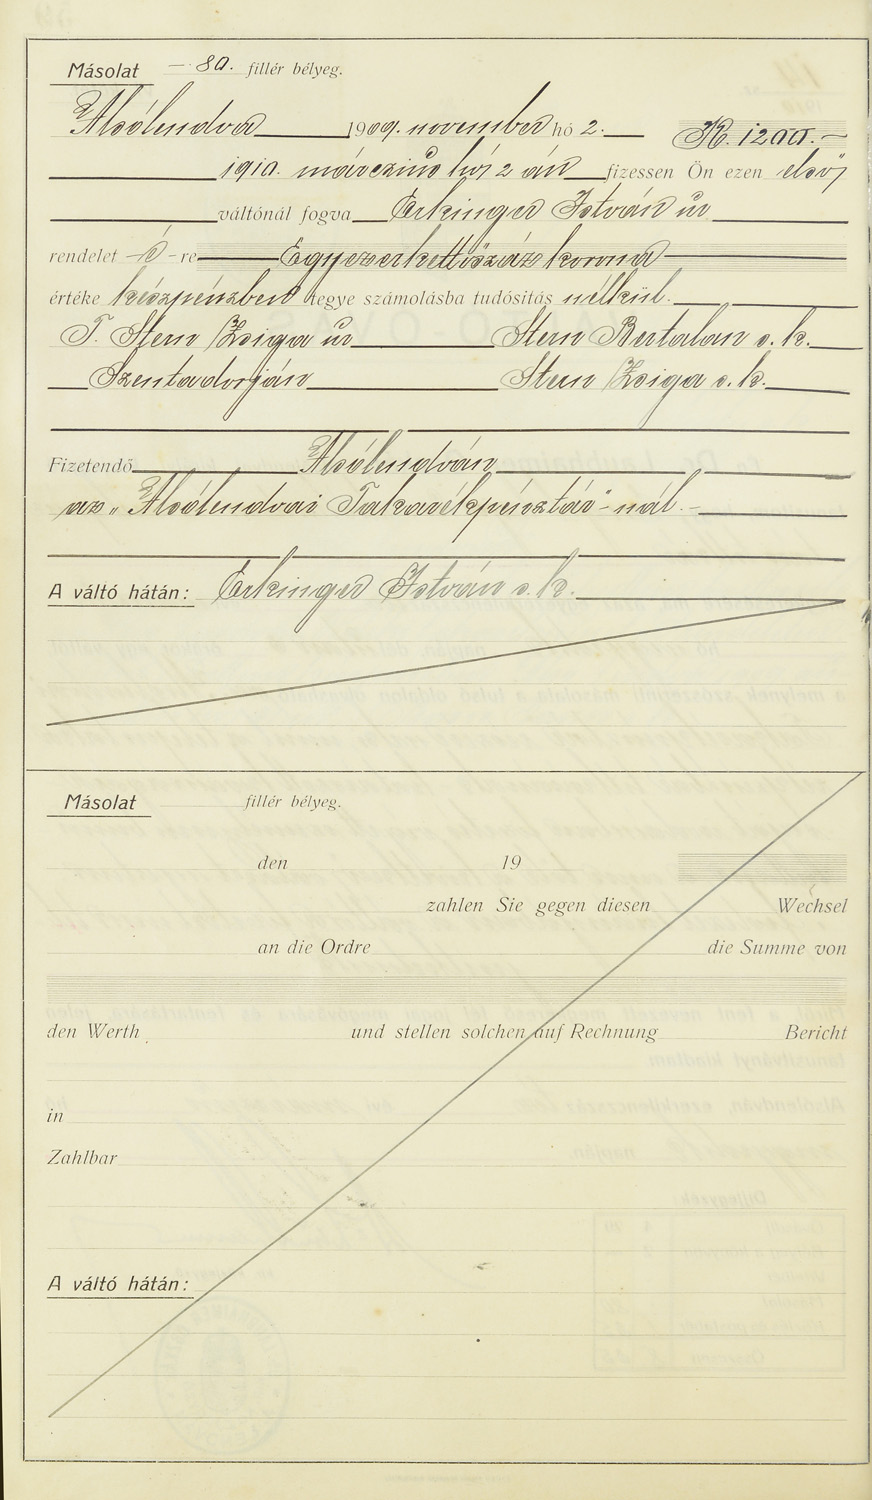 Másolat —.80. fillér bélyeg.
Alsólendva 1909. november hó 2. K. 1200.—
1910. márczius hó 2 án fizessen Ön ezen első
váltónál fogva Erkinger István úr
rendelet -é- re Egyezerkettőszáz korona
értéke készpénzben tegye számolásba tudósítás nélkül.
T. Stern Zsiga úr Stern Bertalan s. k.
Szentadorján Stern Zsiga s. k.
Fizetendő Alsólendván
az „Alsólendvai Takarékpénztár"-nál.-
A váltó hátán: Erkinger István s. k.
Másolat fillér bélyeg.
den 19
zahlen Sie gegen diesen Wechsel
an die Ordre die Summe von
den Werth und stellen solchen auf Rechnung Bericht
in
Zahlbar
A váltó hátán: